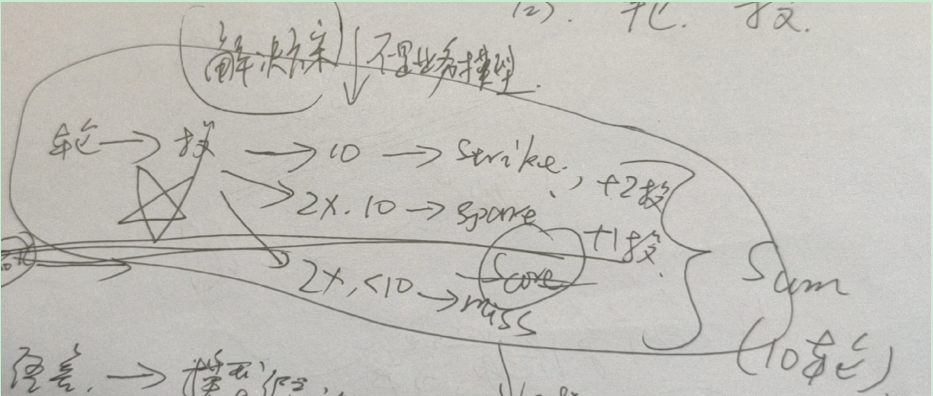 (2). 轮. 投.
解决方案 ↓ 不是业务模型.
轮 → 投 → 10 → Strike, +2投
2X. 10 → spare +1投
2X, <10 → miss
Score
Sum
(10轮)
→ 模型